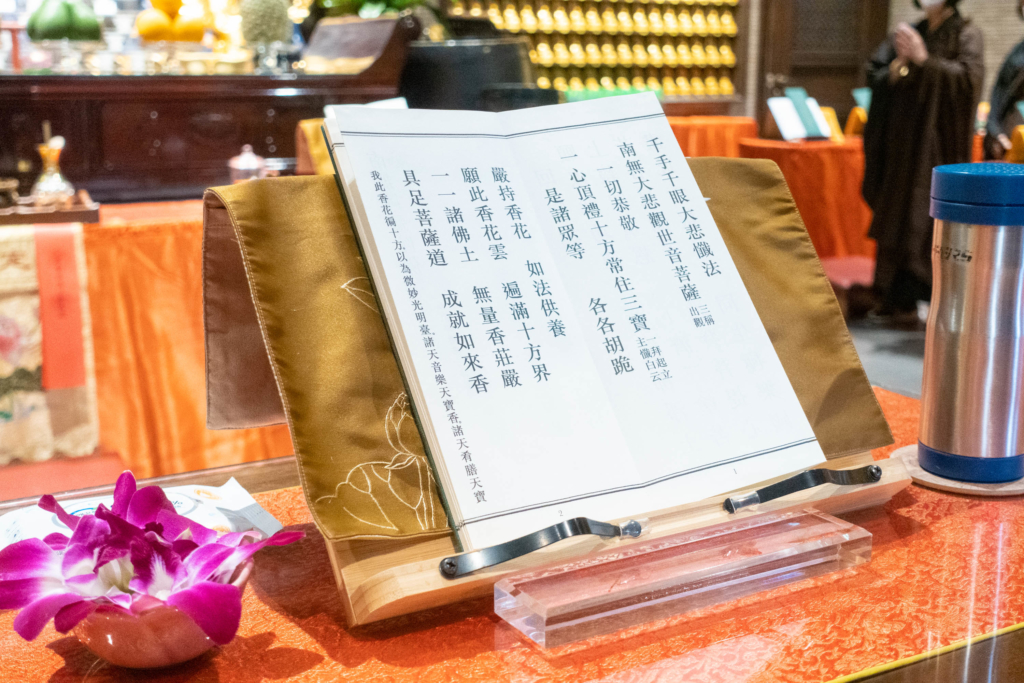 千手千眼大悲懺法
南無大悲觀世音菩薩 三稱出觀
一切恭敬
一心頂禮十方常住三寶 一拜起立主懺白云
是諸眾等 各各胡跪
嚴持香花 如法供養
願此香花雲 遍滿十方界
一一諸佛土 無量香莊嚴
具足菩薩道 成就如來香
我此香花徧十方以為微妙光明臺諸天音樂天寶香諸天肴膳天寶
一
二